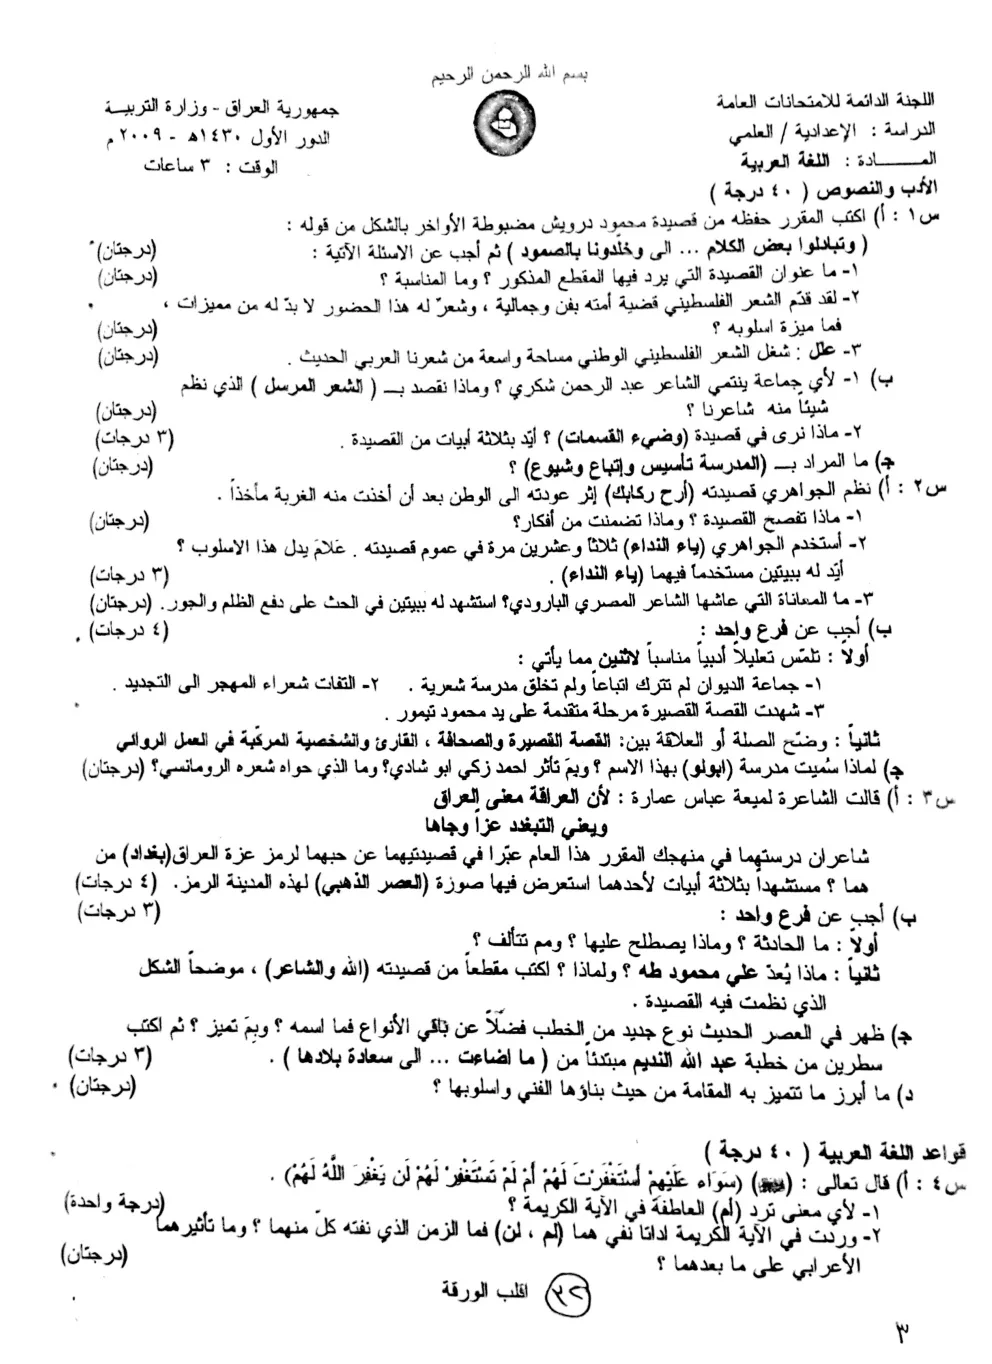 بسم الله الرحمن الرحيم
اللجنة الدائمة للامتحانات العامة
جمهورية العراق - وزارة التربيـة
الدراسة : الإعدادية / العلمي
الدور الأول ١٤٣٠هـ - ٢٠٠٩ م
المــــــادة : اللغة العربية
الوقت : ٣ ساعات
الأدب والنصوص ( ٤٠ درجة )
س١ : أ) اكتب المقرر حفظه من قصيدة محمود درويش مضبوطة الأواخر بالشكل من قوله :
( وتبادلوا بعض الكلام ... الى وخلّدونا بالصمود ) ثم أجب عن الاسئلة الآتية : (درجتان)
١- ما عنوان القصيدة التي يرد فيها المقطع المذكور ؟ وما المناسبة ؟ (درجتان)
٢- لقد قدّم الشعر الفلسطيني قضية أمته بفن وجمالية ، وشعرٌ له هذا الحضور لا بدّ له من مميزات ،
فما ميزة اسلوبه ؟ (درجتان)
٣- علل : شغل الشعر الفلسطيني الوطني مساحة واسعة من شعرنا العربي الحديث . (درجتان)
ب) ١- لأي جماعة ينتمي الشاعر عبد الرحمن شكري ؟ وماذا نقصد بـ ( الشعر المرسل ) الذي نظم
شيئاً منه شاعرنا ؟ (درجتان)
٢- ماذا نرى في قصيدة (وضيء القسمات) ؟ أيّد بثلاثة أبيات من القصيدة . (٣ درجات)
ج) ما المراد بـ (المدرسة تأسيس وإتباع وشيوع) ؟ (درجتان)
س٢ : أ) نظم الجواهري قصيدته (أرح ركابك) إثر عودته الى الوطن بعد أن أخذت منه الغربة مأخذاً .
١- ماذا تفصح القصيدة ؟ وماذا تضمنت من أفكار؟ (درجتان)
٢- أستخدم الجواهري (ياء النداء) ثلاثاً وعشرين مرة في عموم قصيدته . عَلامَ يدل هذا الاسلوب ؟
أيّد له ببيتين مستخدماً فيهما (ياء النداء) . (٣ درجات)
٣- ما المعاناة التي عاشها الشاعر المصري البارودي؟ استشهد له ببيتين في الحث على دفع الظلم والجور. (درجتان)
ب) أجب عن فرع واحد : (٤ درجات)
أولاً : تلمّس تعليلاً أدبياً مناسباً لاثنين مما يأتي :
١- جماعة الديوان لم تترك اتباعاً ولم تخلق مدرسة شعرية . ٢- التفات شعراء المهجر الى التجديد .
٣- شهدت القصة القصيرة مرحلة متقدمة على يد محمود تيمور .
ثانياً : وضّح الصلة أو العلاقة بين: القصة القصيرة والصحافة ، القارئ والشخصية المركّبة في العمل الروائي
ج) لماذا سُميت مدرسة (ابولو) بهذا الاسم ؟ وبمَ تأثر احمد زكي ابو شادي؟ وما الذي حواه شعره الرومانسي؟ (درجتان)
س٣ : أ) قالت الشاعرة لميعة عباس عمارة : لأن العراقة معنى العراق
ويعني التبغدد عزاً وجاها
شاعران درستهما في منهجك المقرر هذا العام عبّرا في قصيدتيهما عن حبهما لرمز عزة العراق(بغداد) من
هما ؟ مستشهداً بثلاثة أبيات لأحدهما استعرض فيها صورة (العصر الذهبي) لهذه المدينة الرمز. (٤ درجات)
ب) أجب عن فرع واحد : (٣ درجات)
أولاً : ما الحادثة ؟ وماذا يصطلح عليها ؟ ومم تتألف ؟
ثانياً : ماذا يُعدّ علي محمود طه ؟ ولماذا ؟ اكتب مقطعاً من قصيدته (الله والشاعر) ، موضحاً الشكل
الذي نظمت فيه القصيدة .
ج) ظهر في العصر الحديث نوع جديد من الخطب فضلاً عن باقي الأنواع فما اسمه ؟ وبمَ تميز ؟ ثم اكتب
سطرين من خطبة عبد الله النديم مبتدئاً من ( ما اضاءت ... الى سعادة بلادها ) . (٣ درجات)
د) ما أبرز ما تتميز به المقامة من حيث بناؤها الفني واسلوبها ؟ (درجتان)
قواعد اللغة العربية ( ٤٠ درجة )
س٤ : أ) قال تعالى : (سَوَاء عَلَيْهِمْ أَسْتَغْفَرْتَ لَهُمْ أَمْ لَمْ تَسْتَغْفِرْ لَهُمْ لَن يَغْفِرَ اللَّهُ لَهُمْ) .
١- لأي معنى ترد (أم) العاطفة في الآية الكريمة ؟ (درجة واحدة)
٢- وردت في الآية الكريمة اداتا نفي هما (لم ، لن) فما الزمن الذي نفته كلّ منهما ؟ وما تأثيرهما
الأعرابي على ما بعدهما ؟ (درجتان)
اقلب الورقة
٣٢
٣